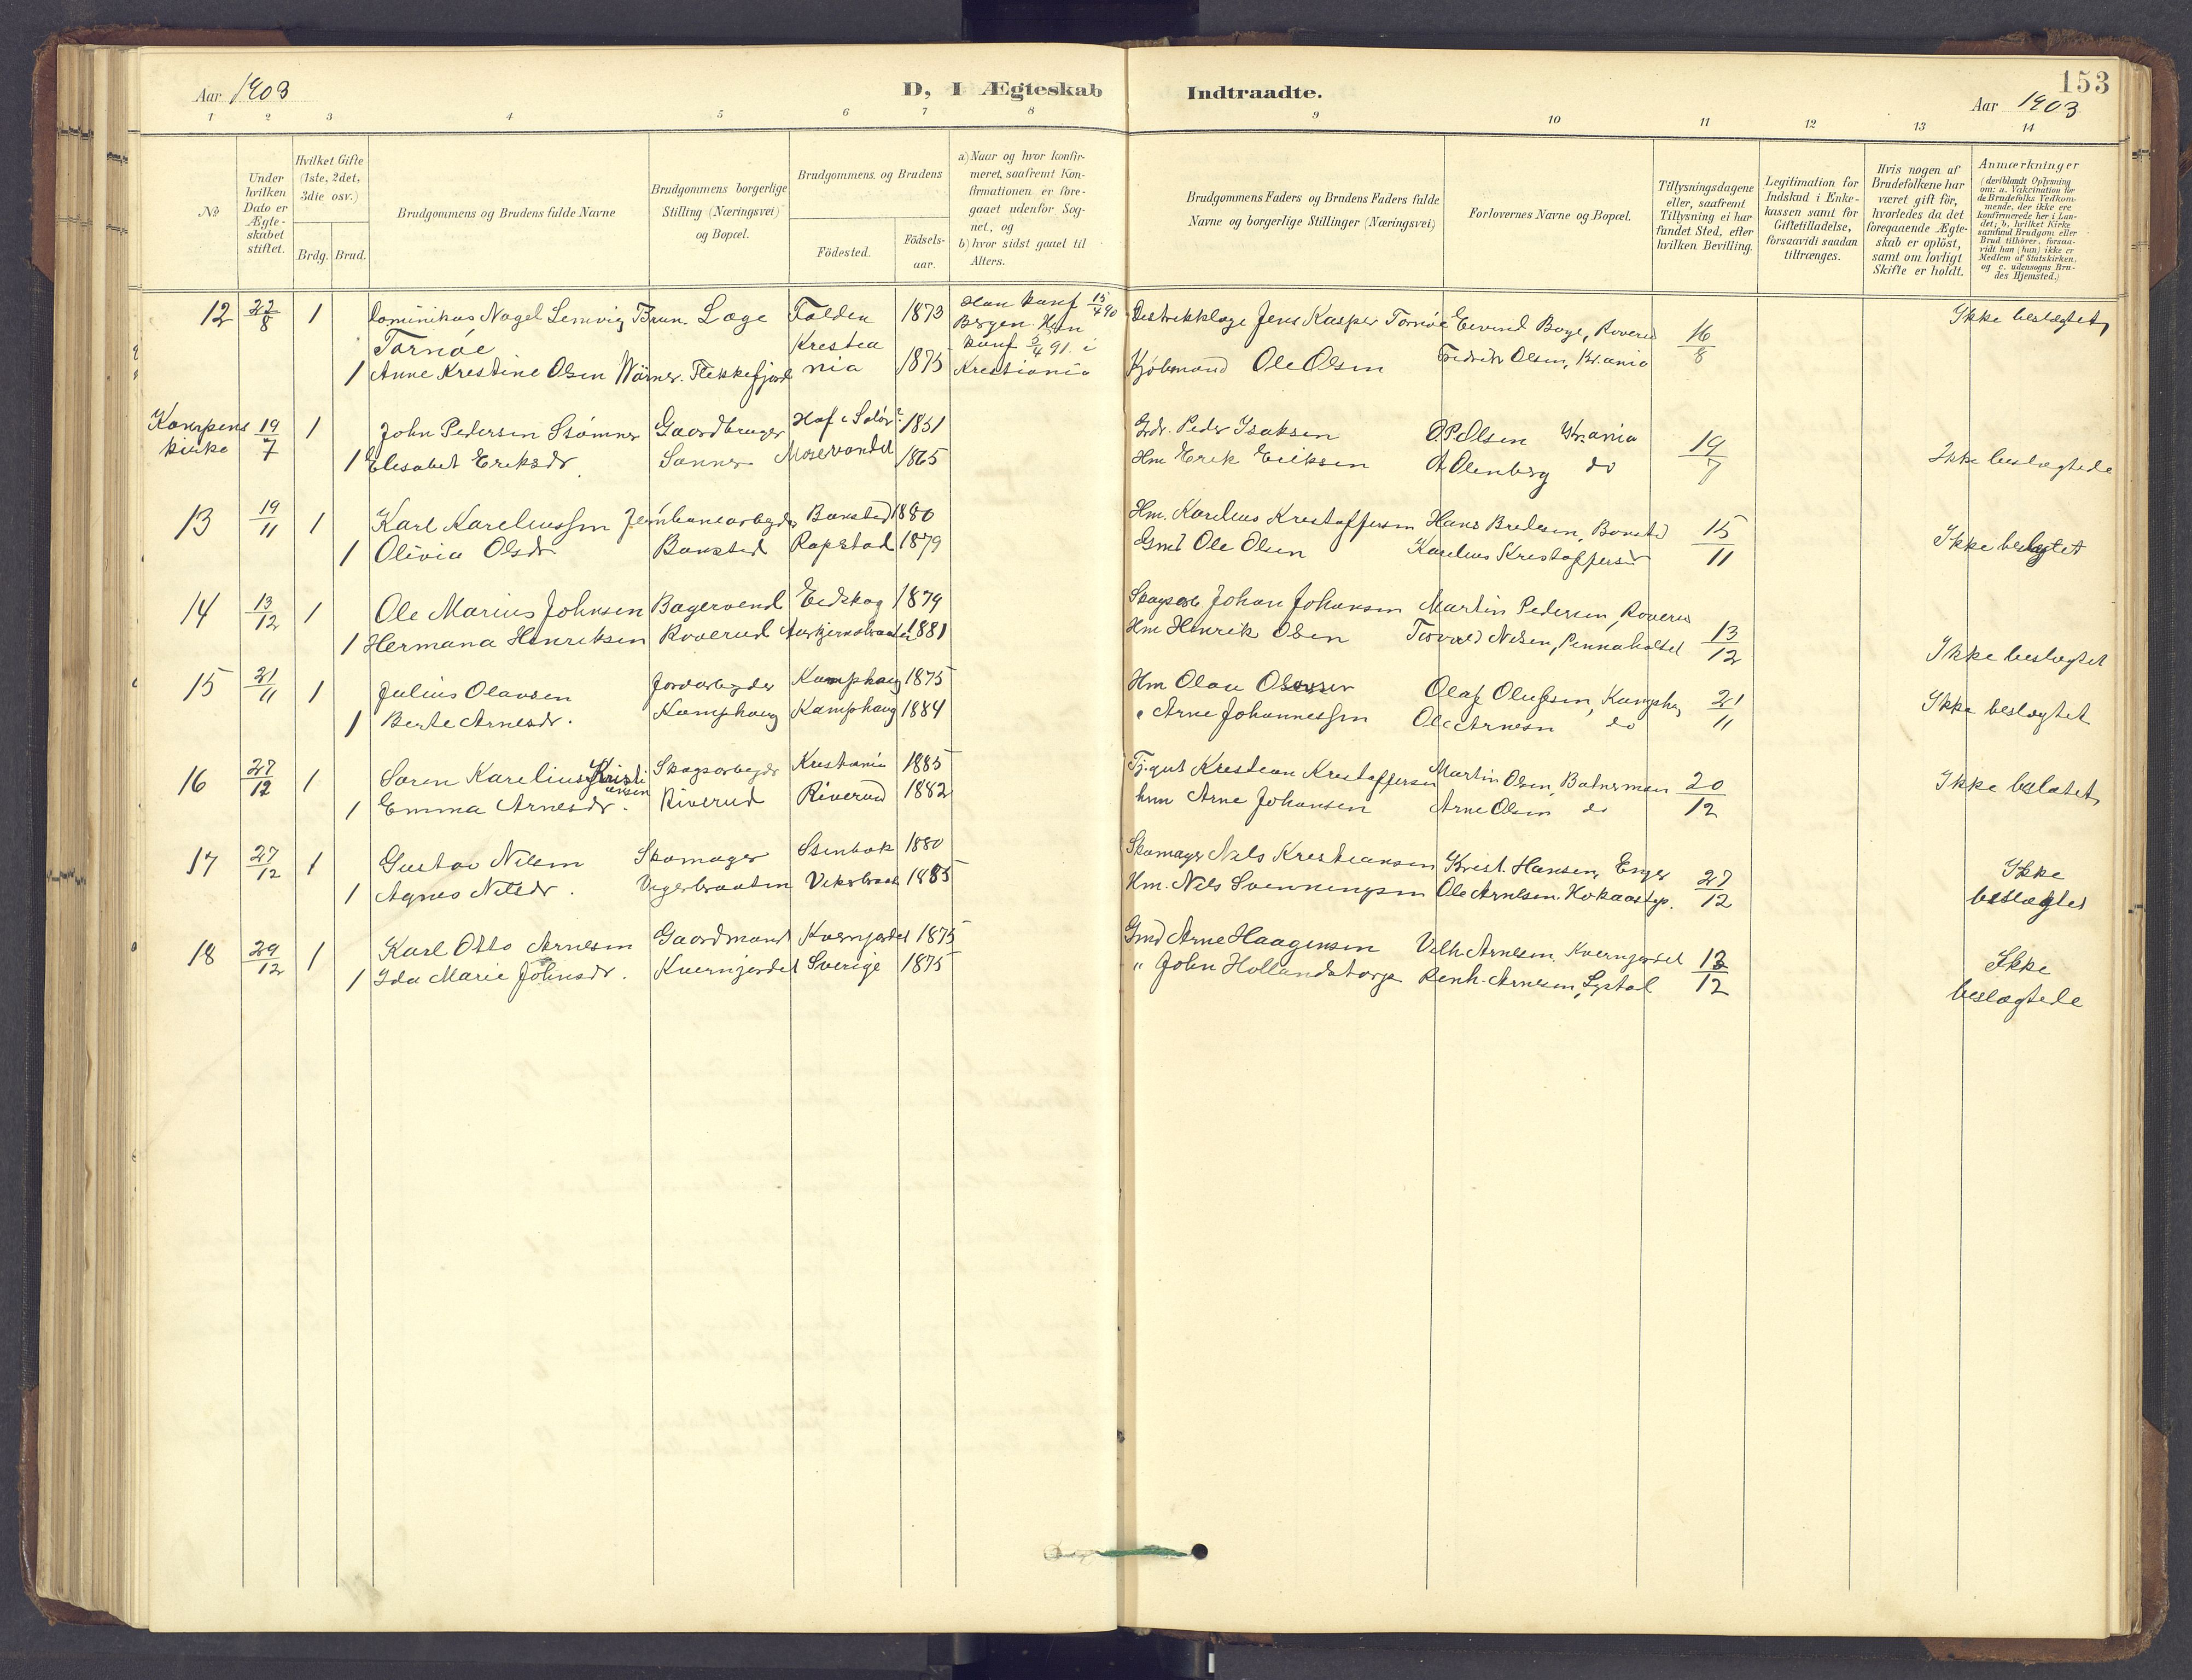 153
Aar 1903
D, I Ægteskab Indtraadte.
Aar 1903
1 2 3 4 5 6 7 8 9 10 11 12 13 14
No
Under hvilken Dato er Ægte-skabet stiftet.
Hvilket Gifte (1ste, 2det, 3die osv.)
Brdg. Brud.
Brudgommens og Brudens fulde Navne
Brudgommens borgerlige Stilling (Næringsvei) og Bopæl.
Brudgommens og Brudens
Födested.
Födsels-aar.
a) Naar og hvor konfir-meret, saafremt Kon-firmationen er fore-gaaet udenfor Sog-net, og
b) hvor sidst gaaet til Alters.
Brudgommens Faders og Brudens Faders fulde Navne og borgerlige Stillinger (Næringsvei)
Forlovernes Navne og Bopæl.
Tillysningsdagene eller, saafremt Tillysning ei har fundet Sted, efter hvilken Bevilling.
Legitimation for Indskud i Enke-kassen samt for Giftetilladelse, forsaavidt saadan tiltrænges.
Hvis nogen af Brudefolkene har været gift för, hvorledes da det foregaaende Ægte-skab er oplöst, samt om lovligt Skifte er holdt.
Anmærkninger (deriblandt Oplysning om: a. Vakcination for de Brudefolks Vedkom-mende, der ikke ere konfirmerede her i Lan-det; b. hvilket Kirke-samfund Brudgom eller Brud tilhörer, forsaa-vidt han (hun) ikke er Medlem af Statskirken, og c. udensogns Bru-des Hjemsted.)
12 22/8 1 Dominikus Nagel Lemvig Brun Læge Folden 1873 Han konf 15/4 90 Distriktslæge Jens Kasper Tornöe Eivind Boye, Roverud 16/8 Ikke beslægtet
Tornöe Krestia Bergen. Hun konf 5/4 91. i
1 Anne Krestine Olsen Wärner. Flekkefjord nia 1875 Krestiania Kjöbmand Ole Olsen Fredrik Olsen, Kr.ania
Kampens kirke 19/7 1 John Pedersen Stömner Gaardbruger Hof i Solör 1851 Gdr. Peder Isaksen O.P. Olsen Kr.ania 19/7 Ikke beslægtede
1 Elisabet Eriksdr. Sanner Mosevandet 1865 Hm Erik Eriksen A Olenberg do
13 19/11 1 Karl Kareliussen Jernbanearbeyder Bousted 1880 Hm. Karelius Krestoffersen Hans Bredesen, Bousted 15/11 Ikke beslegtet
1 Olivia Olsdr Bousted Rapstad 1879 Gmd Ole Olsen Karelius Krestoffersen
14 13/12 1 Ole Marius Johnsen Bagersvend Eidskog 1879 Skogsarb Johan Johansen Martin Pedersen, Roverud 13/12 Ikke beslægtet
1 Hermana Henriksen Roverud 1881 Hm Henrik Olsen Torvald Nilsen, Pennaholtet
15 21/11 1 Julius Olausen Jordarbeyder Kamphaug 1875 Hm Olau Olausen Olaf Olufsen, Kamphaug 21/11 Ikke beslægtet
1 Berte Arnesdr. Kamphaug Kamphaug 1884 " Arne Johannessen Ole Arnesen do
16 27/12 1 Soren Karelius Kristiansen Skogsarbeyder Krestiania 1885 Tj.gut Krestian Krestoffersen Martin Olsen, 20/12 Ikke beslætet
1 Emma Arnesdr. Riverud Riverud 1882 Arne Johansen Arne Olsen do
17 27/12 1 Gustav Nilsen Skomager Stenbak 1880 Skomager Nils Krestiansen Krest. Hansen, Enger 27/12 Ikke beslægtet
1 Agnes Nilsdr. 1885 Hm. Nils Svenningsen Ole Arnesen.
18 29/12 1 Karl Otto Arnesen Gaardmand Kvernjordet 1875 Gmd Arne Haagensen Vilh. Arnesen, Kvernjordet 13/12 Ikke beslægtede
1 Ida Marie Johnsdr. Kvernjordet Sverige 1875 " John Hollandstorp Renh. Arnesen, Lystad